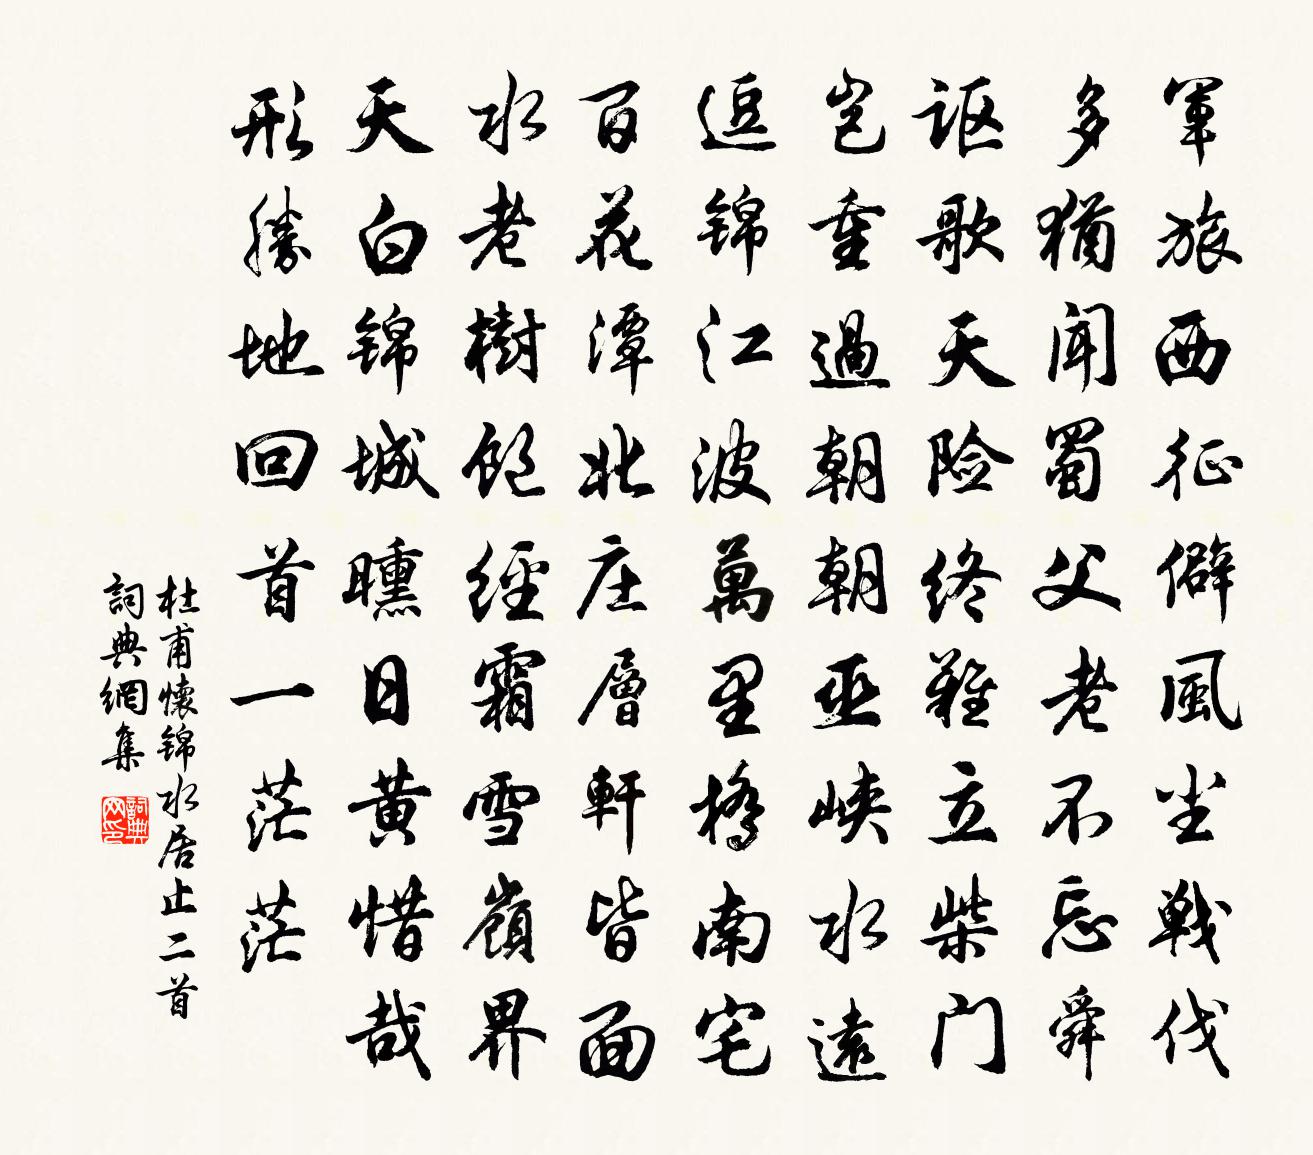 軍旅西征僻風尘戦伐
多猶聞蜀父老不忘舜
讴歌天险终難立柴门
岂重過朝朝巫峽水遠
逗锦江波萬里橋南宅
百花潭北庄層軒皆面
水老樹饱經霜雪嶺界
天白锦城曛日黄惜哉
形勝地回首一茫茫
杜甫懷锦水居止二首
詞典網集
詞典网印